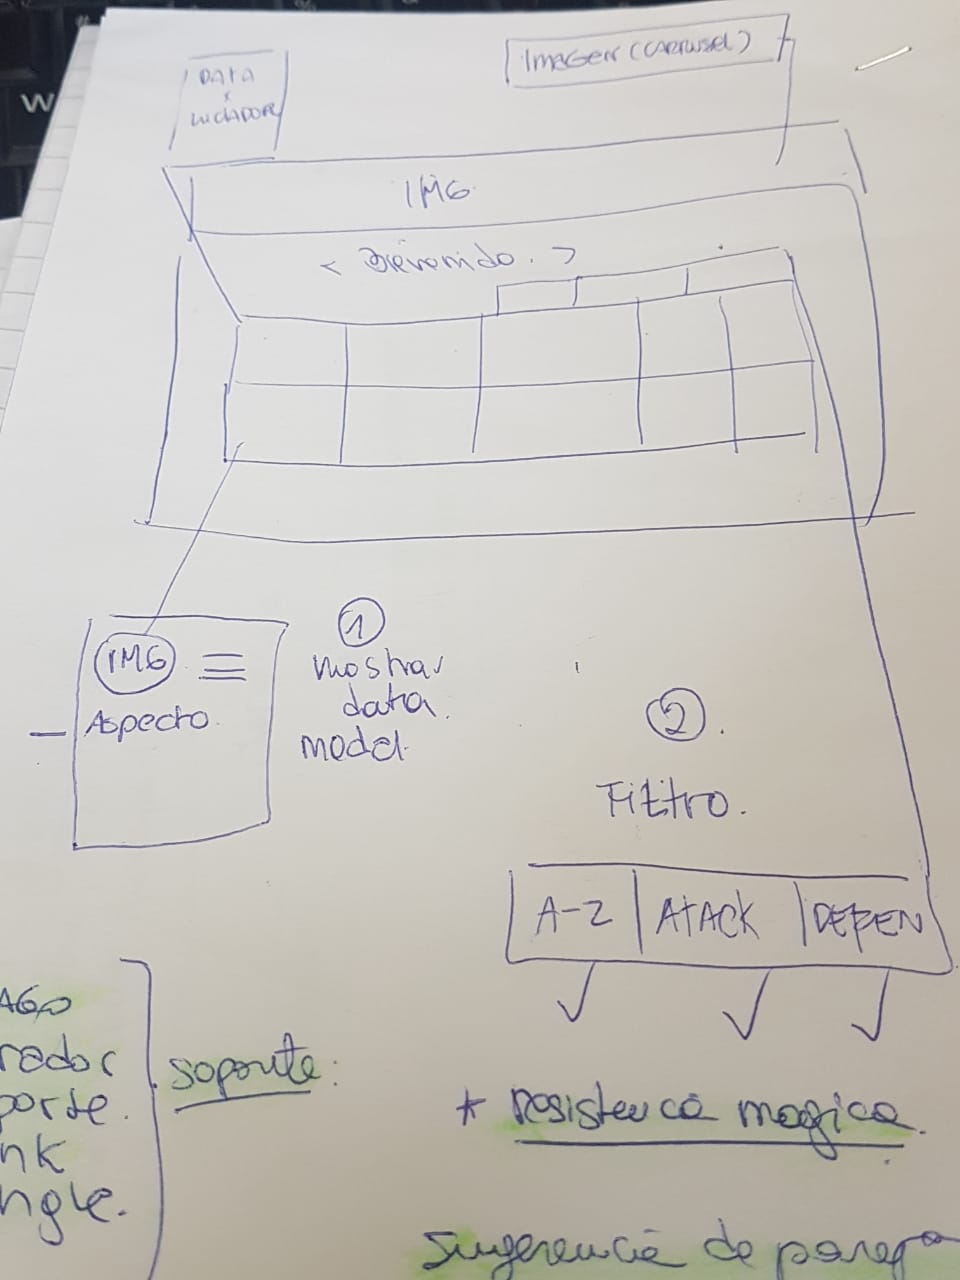 W
DATA
x
IMAGEN (CARRUSEL)
IMG
< Bievenido. >
IMG
Aspecto.
1
mostrar
data.
model.
2.
Filtro.
A-Z
ATACK
DEFEN
AGO
rador
porte.
nk
ngle.
soporte:
* Resistencia magica.
Sugerencia de pareja